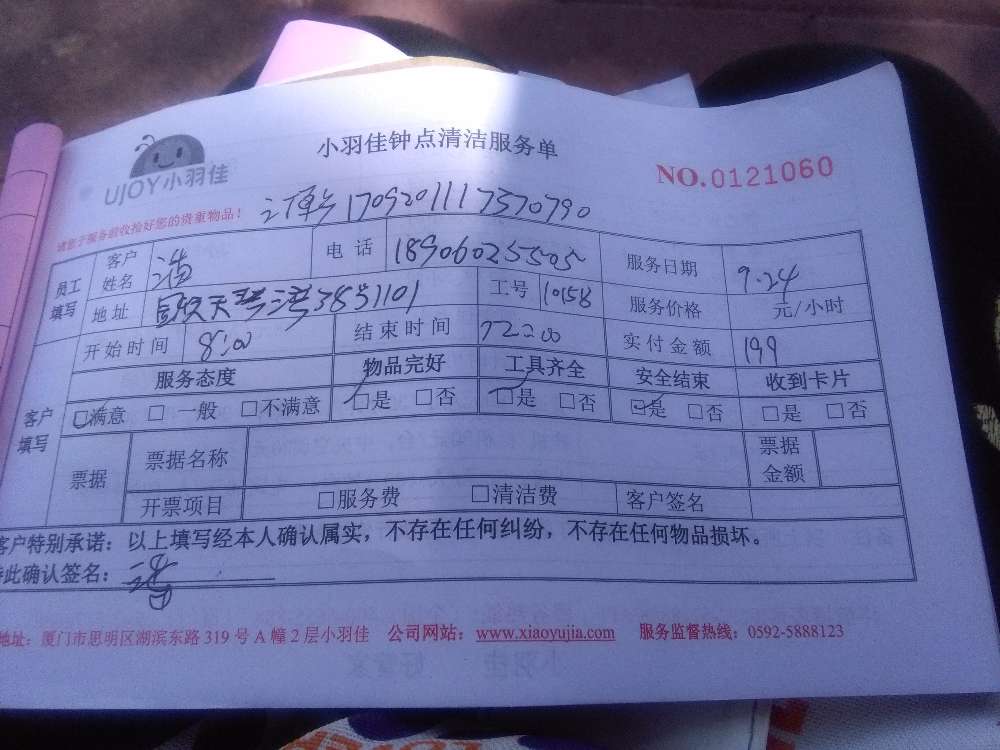 小羽佳钟点清洁服务单
UJOY小羽佳
NO.0121060
请您于服务前收拾好您的贵重物品！
1709201117370790
员工填写 客户姓名 洁 电话 18906025505 服务日期 9.24
地址 38 1101 工号 10158 服务价格 元/小时
开始时间 8:00 结束时间 12:00 实付金额 199
服务态度 物品完好 工具齐全 安全结束 收到卡片
客户填写 □满意 □一般 □不满意 □是 □否 □是 □否 □是 □否 □是 □否
票据 票据名称 票据金额
开票项目 □服务费 □清洁费 客户签名
客户特别承诺：以上填写经本人确认属实，不存在任何纠纷，不存在任何物品损坏。
特此确认签名：
地址：厦门市思明区湖滨东路319号A幢2层小羽佳 公司网站：www.xiaoyujia.com 服务监督热线：0592-5888123